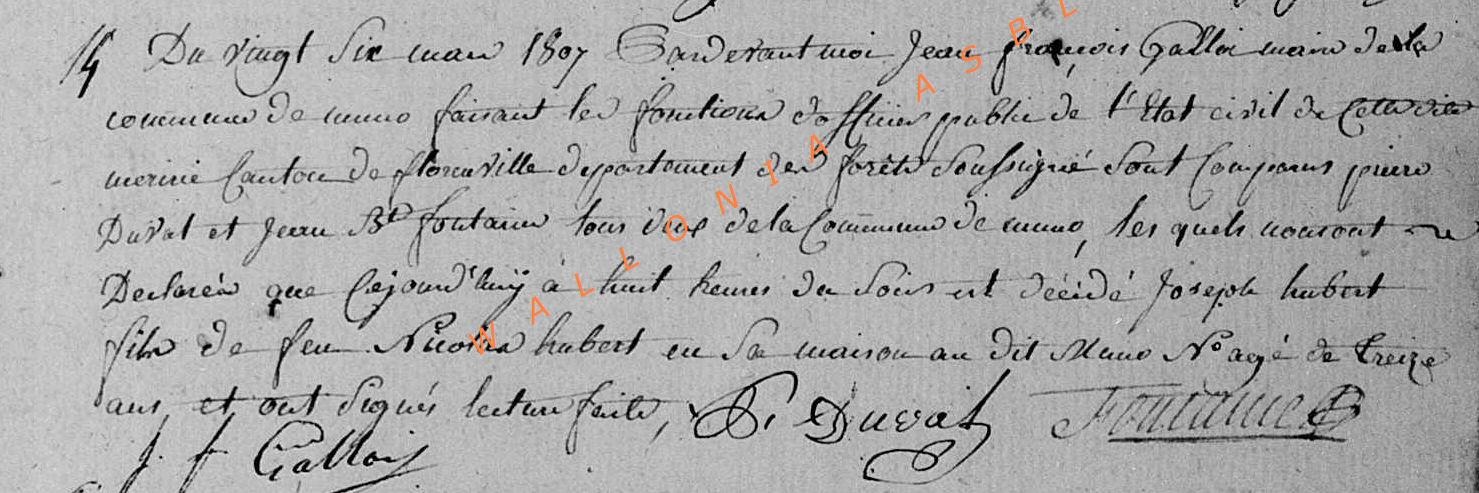 14 Du vingt Six mars 1807 Pardevant moi Jean françois Galloi maire de la
commune de muno faisant les fonctions d'officier public de l'Etat civil de Cette ville
meririe Canton de florenville département des forêts Soussigné Sont Comparus pierre
Duval et Jean Bte fontaine tous deux de la Commune de muno, les quels nous ont
Declarés que Cejourd'huÿ à huit heures du Soir est décédé Joseph hubert
fils de feu Nicolas hubert en Sa maison au dit Muno No agé de treize
ans, et ont Signés lecture faite, P. Duval Fontaine
J. f Gallois
WALLONIA ASBL